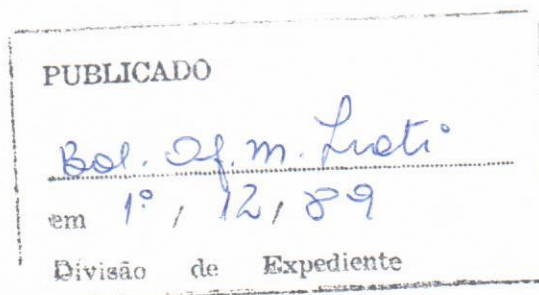 PUBLICADO
Bol. Of. M. Irati
em 1º / 12 / 89
Divisão de Expediente